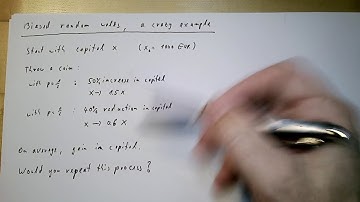 Biased random walks, a crazy example
Start with capital X (X₀ = 1000 EUR)
Throw a coin:
with p = 1/2 : 50% increase in capital
X → 1.5 X
with p = 1/2 : 40% reduction in capital
X → 0.6 X
On average, gain in capital.
Would you repeat this process?